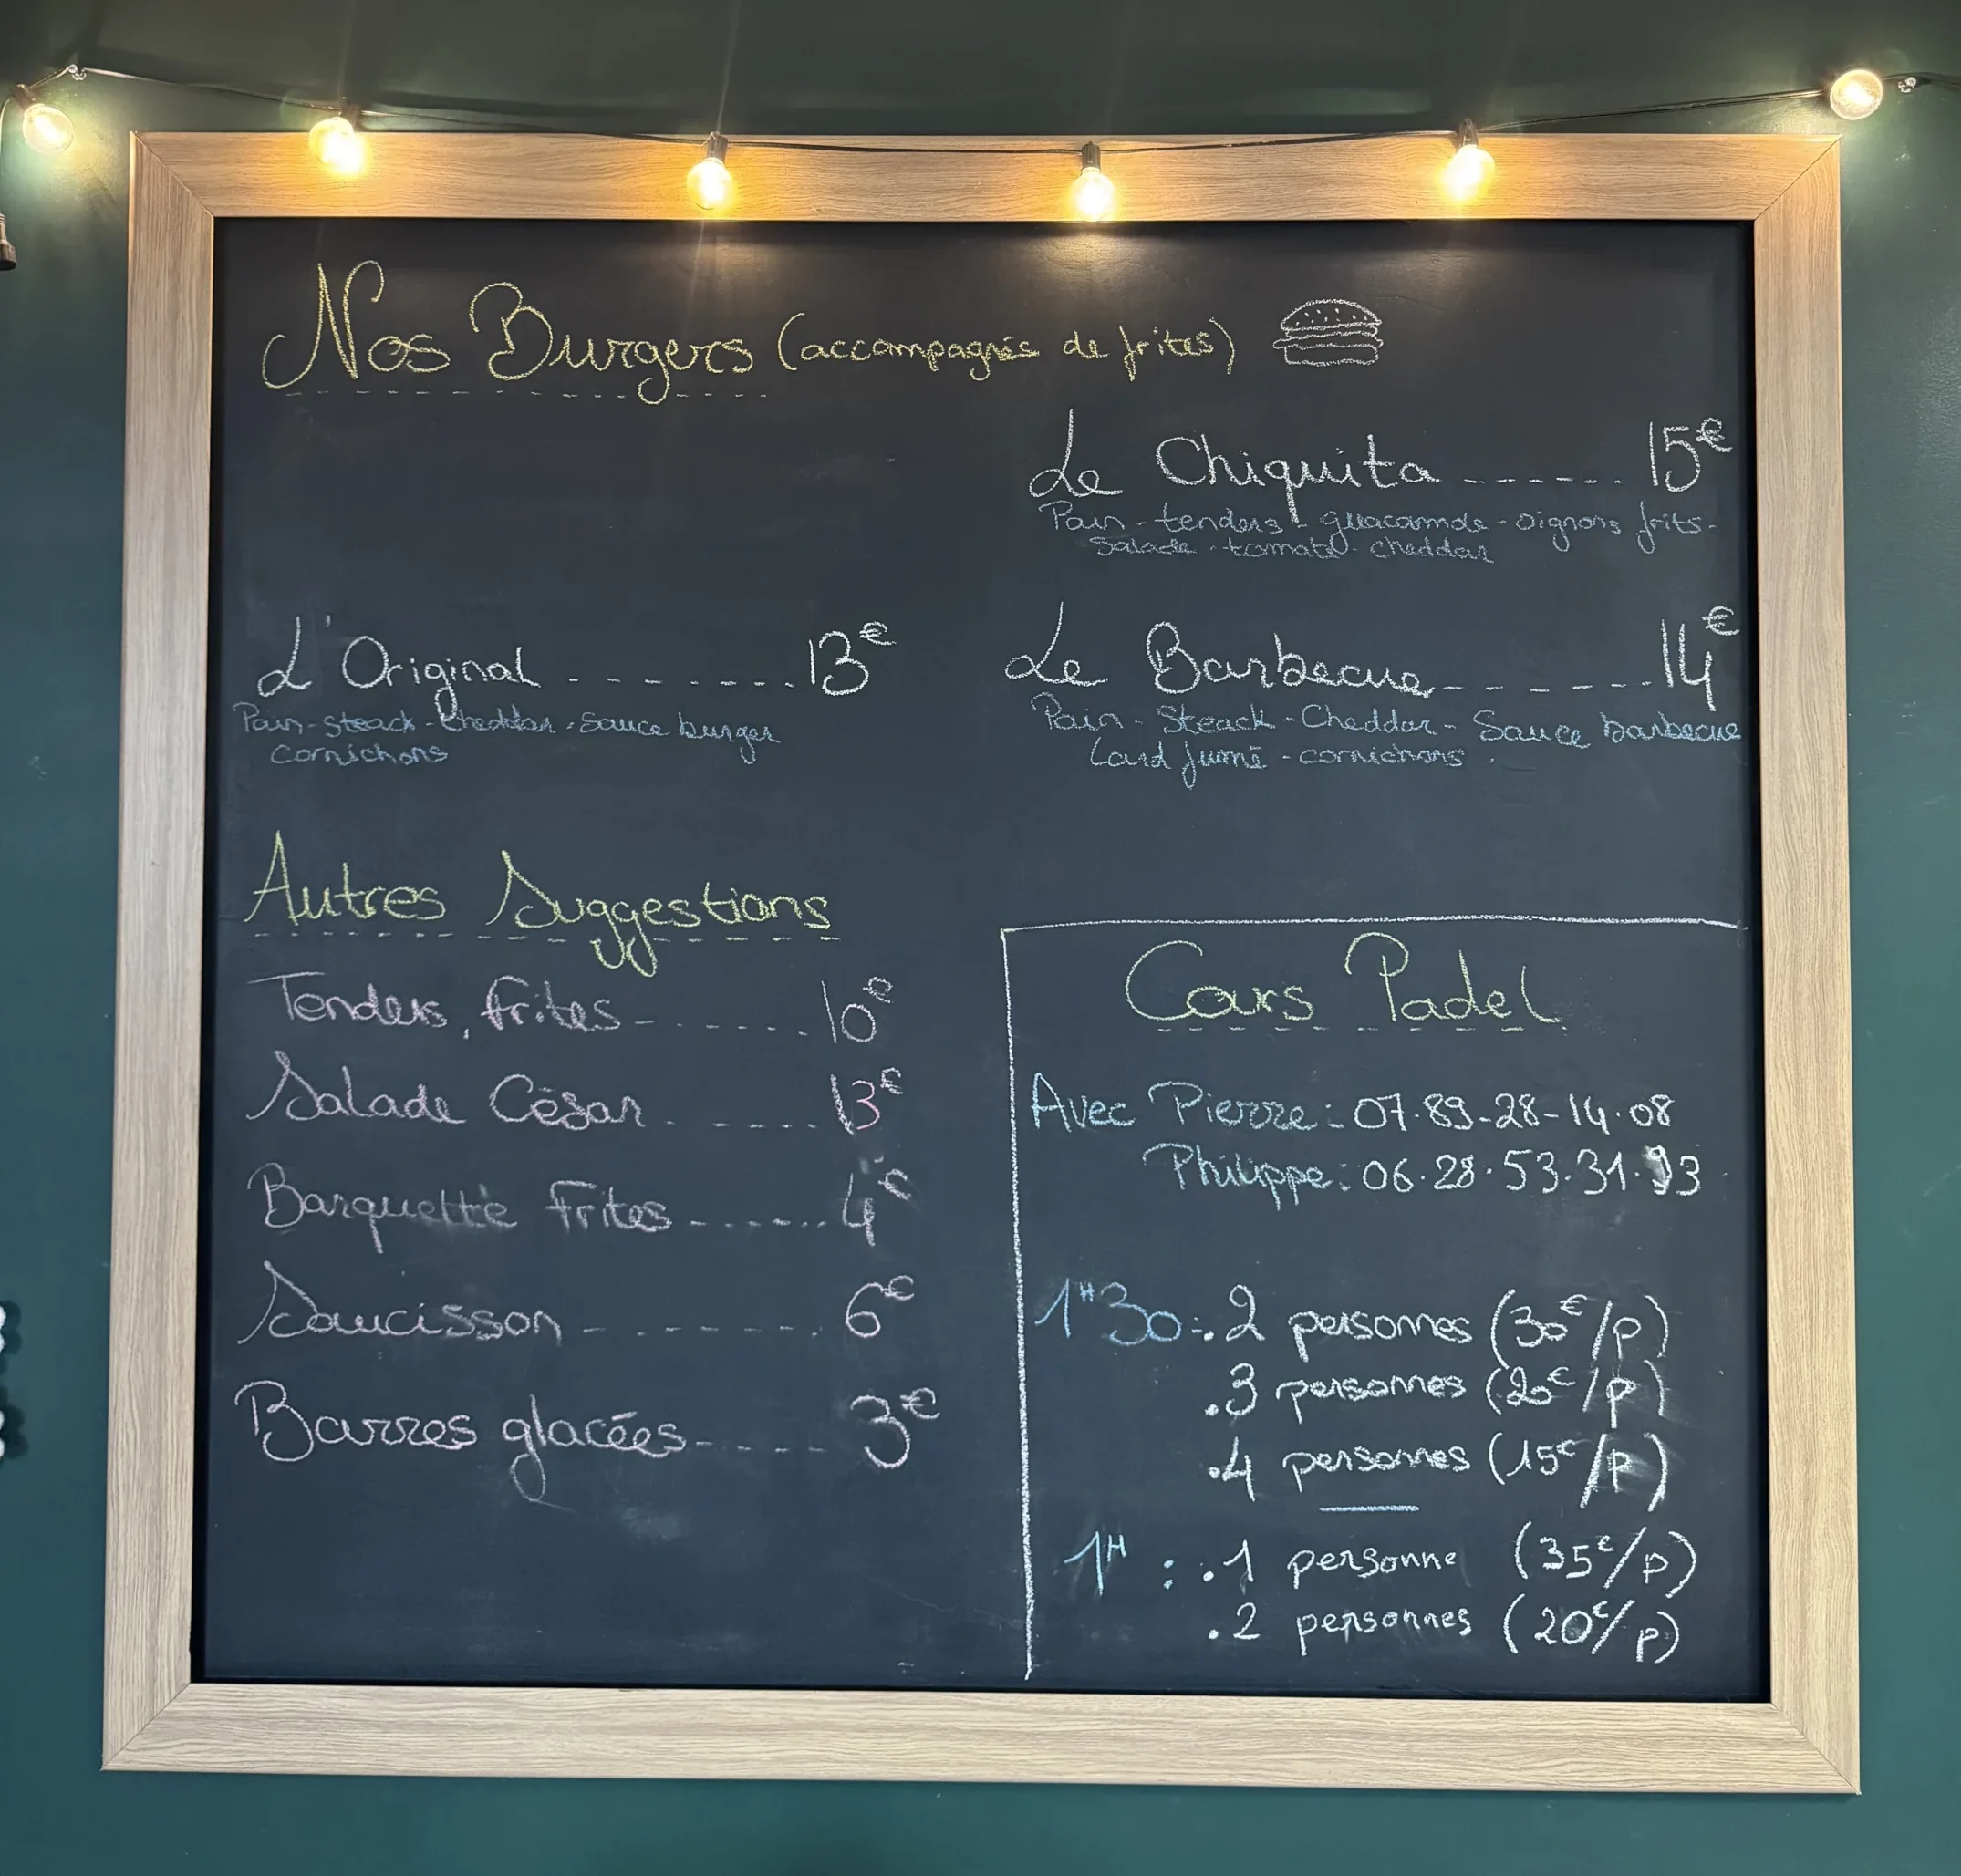 Nos Burgers (accompagnés de frites)
Le Chiquita ------- 15€
Pain - tenders - guacamole - oignons frits -
Salade - tomate - cheddar
L'Original -------- 13€
Pain - steack - Cheddar - Sauce burger
Cornichons
Le Barbecue ------- 14€
Pain - Steack - Cheddar - Sauce barbecue
Lard fumé - cornichons .
Autres Suggestions
Tenders, frites ------- 10€
Salade César ------- 13€
Barquette Frites ------- 4€
Saucisson -------- 6€
Barres glacées ----- 3€
Cours Padel
Avec Pierre : 07.89-28-14.08
Philippe : 06.28.53.31.93
1H30 : .2 personnes (30€/p)
.3 personnes (20€/p)
.4 personnes (15€/p)
1H : .1 personne (35€/p)
.2 personnes (20€/p)